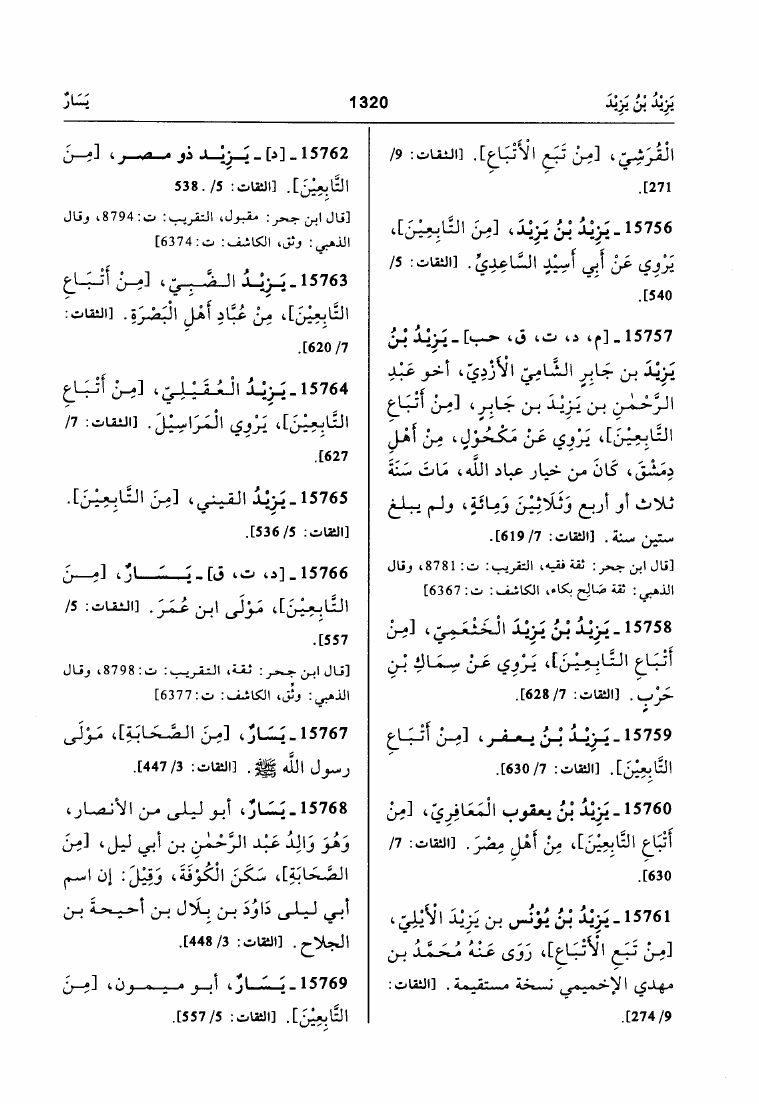 يَزِيْدُ بْنُ يَزِيْدَ
1320
يَسَارٌ
الْقُرَشِيّ، [مِنْ تَبَعِ الْأَتْبَاعِ]. [الثقات: 9/
271].
15756 ـ يَزِيْدُ بْنُ يَزِيْدَ، [مِنَ التَّابِعِيْنَ]،
يَرْوِي عَنْ أَبِي أُسَيْدٍ السَّاعِدِيِّ. [الثقات: 5/
540].
15757 ـ [م، د، ت، ق، حب] ـ يَزِيْدُ بْنُ
يَزِيْدَ بن جَابِرٍ الشَّامِيّ الْأَزْدِيّ، أخو عَبْدِ
الرَّحْمٰنِ بن يَزِيْدَ بن جَابِرٍ، [مِنْ أَتْبَاعِ
التَّابِعِيْنَ]، يَرْوِي عَنْ مَكْحُوْلٍ، مِنْ أَهْلِ
دِمَشْقَ، كَانَ من خيار عباد اللَّه، مَاتَ سَنَةَ
ثلاث أو أربع وَثَلَاثِيْنَ وَمِائَةٍ، ولم يبلغ
ستين سنة. [الثقات: 7/ 619].
[قال ابن حجر: ثقة فقيه، التقريب: ت: 8781، وقال
الذهبي: ثقة صَالِح بكاء، الكاشف: ت: 6367]
15758 ـ يَزِيْدُ بْنُ يَزِيْدَ الْخَثْعَمِيّ، [مِنْ
أَتْبَاعِ التَّابِعِيْنَ]، يَرْوِي عَنْ سِمَاكِ بْنِ
حَرْبٍ. [الثقات: 7/ 628].
15759 ـ يَزِيْدُ بْنُ يعفر، [مِنْ أَتْبَاعِ
التَّابِعِيْنَ]. [الثقات: 7/ 630].
15760 ـ يَزِيْدُ بْنُ يعقوب الْمَعَافِرِيّ، [مِنْ
أَتْبَاعِ التَّابِعِيْنَ]، مِنْ أَهْلِ مِصْرَ. [الثقات: 7/
630].
15761 ـ يَزِيْدُ بْنُ يُوْنُس بن يَزِيْدَ الْأَيْلِيّ،
[مِنْ تَبَعِ الْأَتْبَاعِ]، رَوَى عَنْهُ مُحَمَّدُ بن
مهدي الإخميمي نسخة مستقيمة. [الثقات:
9/ 274].
15762 ـ [د] ـ يَزِيْد ذو مصر، [مِنَ
التَّابِعِيْنَ]. [الثقات: 5/. 538
[قال ابن حجر: مقبول، التقريب: ت: 8794، وقال
الذهبي: وثق، الكاشف: ت: 6374]
15763 ـ يَزِيْدُ الضَّبِيّ، [مِنْ أَتْبَاعِ
التَّابِعِيْنَ]، مِنْ عُبَّادِ أَهْلِ الْبَصْرَةِ. [الثقات:
7/ 620].
15764 ـ يَزِيْدُ الْعُقَيْلِيّ، [مِنْ أَتْبَاعِ
التَّابِعِيْنَ]، يَرْوِي الْمَرَاسِيْلَ. [الثقات: 7/
627].
15765 ـ يَزِيْدُ القيني، [مِنَ التَّابِعِيْنَ].
[الثقات: 5/ 536].
15766 ـ [د، ت، ق] ـ يَسَارٌ، [مِنَ
التَّابِعِيْنَ]، مَوْلَى ابن عُمَرَ. [الثقات: 5/
557].
[قال ابن حجر: ثقة، التقريب: ت: 8798، وقال
الذهبي: وثق، الكاشف: ت: 6377]
15767 ـ يَسَارٌ، [مِنَ الصَّحَابَةِ]، مَوْلَى
رسول اللَّه ﷺ. [الثقات: 3/ 447].
15768 ـ يَسَارٌ، أبو ليلى من الأنصار،
وَهُوَ وَالِدُ عَبْدِ الرَّحْمٰنِ بن أبي ليل، [مِنَ
الصَّحَابَةِ]، سَكَنَ الْكُوْفَةَ، وَقِيْلَ: إن اسم
أبي ليلى دَاوُدَ بن بِلَال بن أحيحة بن
الجلاح. [الثقات: 3/ 448].
15769 ـ يَسَارٌ، أبو ميمون، [مِنَ
التَّابِعِيْنَ]. [الثقات: 5/ 557].